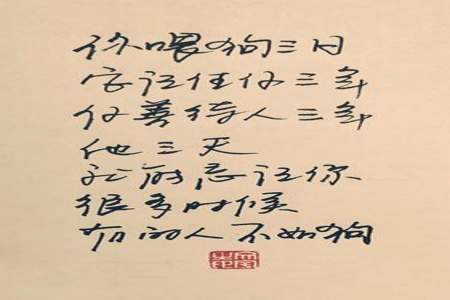 你喂狗三日
它记住你三年
你善待人三年
他三天
就能忘记你
很多时候
有的人不如狗